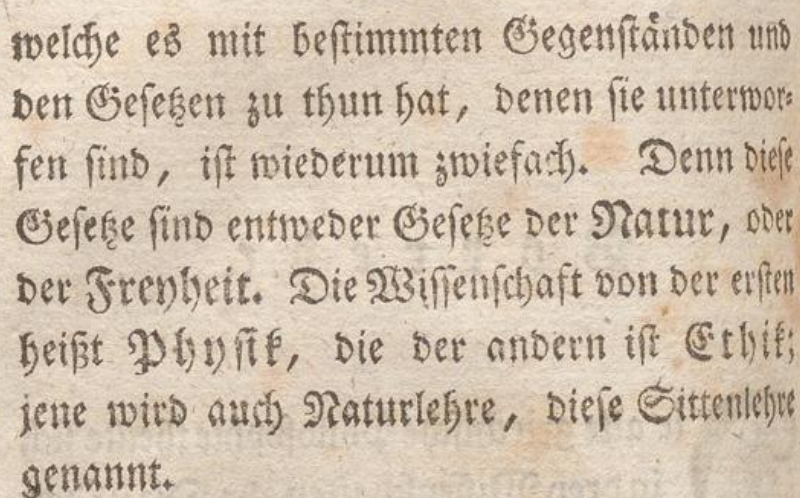 welche es mit bestimmten Gegenständen und
den Gesetzen zu thun hat, denen sie unterwor-
fen sind, ist wiederum zwiefach. Denn diese
Gesetze sind entweder Gesetze der Natur, oder
der Freyheit. Die Wissenschaft von der ersten
heißt Physik, die der andern ist Ethik;
jene wird auch Naturlehre, diese Sittenlehre
genannt.